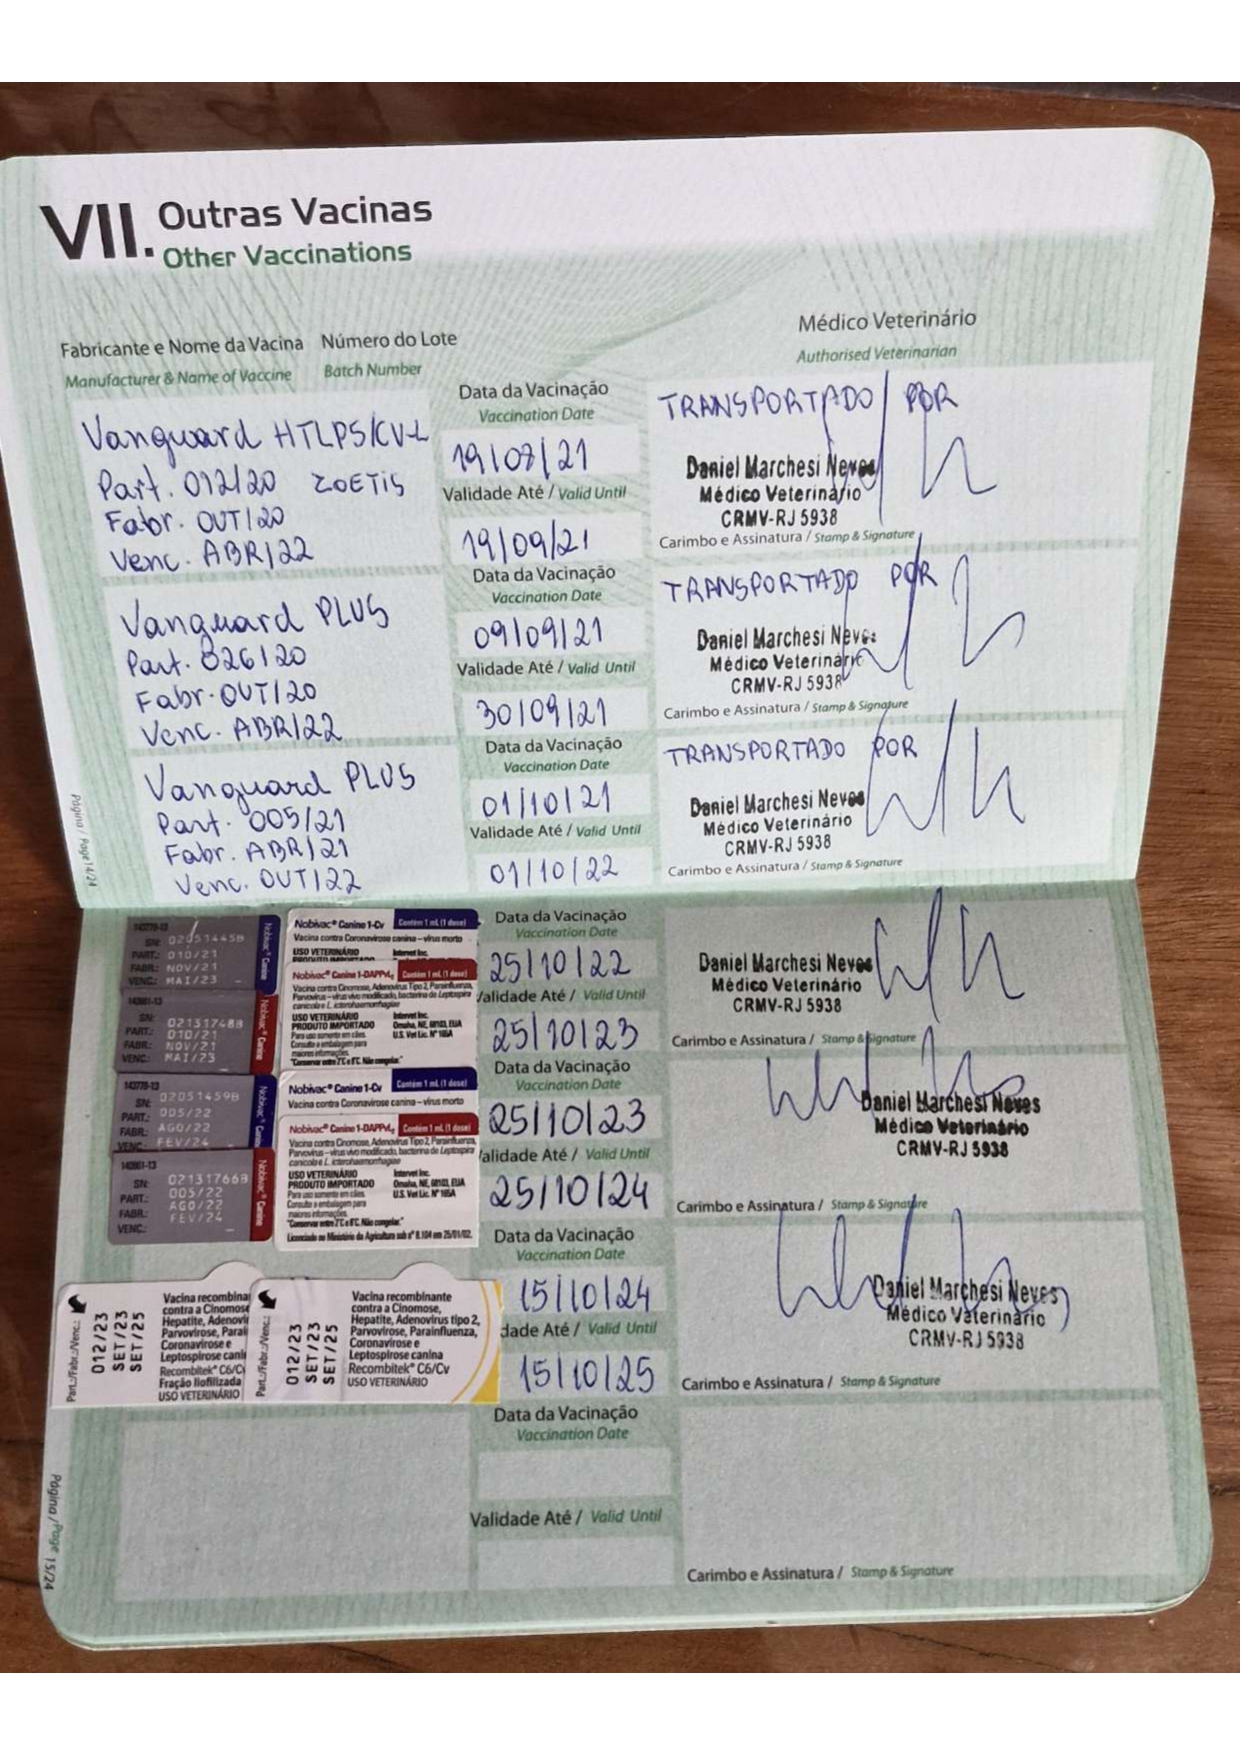 VII. Outras Vacinas
Other Vaccinations
Fabricante e Nome da Vacina Número do Lote
Manufacturer & Name of Vaccine Batch Number
Médico Veterinário
Authorised Veterinarian
Vanguard HTLP5/CV-L
Part. 012/20 ZOETIS
Fabr. OUT/20
Venc. ABR/22
Data da Vacinação
Vaccination Date
19/08/21
Validade Até / Valid Until
19/09/21
TRANSPORTADO POR
Daniel Marchesi Neves
Médico Veterinário
CRMV-RJ 5938
Carimbo e Assinatura / Stamp & Signature
Vanguard PLUS
Part. 026/20
Fabr. OUT/20
Venc. ABR/22
Data da Vacinação
Vaccination Date
09/09/21
Validade Até / Valid Until
30/09/21
TRANSPORTADO POR
Daniel Marchesi Neves
Médico Veterinário
CRMV-RJ 5938
Carimbo e Assinatura / Stamp & Signature
Vanguard PLUS
Part. 005/21
Fabr. ABR/21
Venc. OUT/22
Data da Vacinação
Vaccination Date
01/10/21
Validade Até / Valid Until
01/10/22
TRANSPORTADO POR
Daniel Marchesi Neves
Médico Veterinário
CRMV-RJ 5938
Carimbo e Assinatura / Stamp & Signature
Página / Page 14/24
143778-13
SN: 02051445B
PART.: 010/21
FABR.: NOV/21
VENC.: MAI/23
Nobivac® Canine
Nobivac® Canine 1-Cv Contém 1 mL (1 dose)
Vacina contra Coronavirose canina – vírus morto
USO VETERINÁRIO Intervet Inc.
140861-13
SN: 02131748B
PART.: 010/21
FABR.: NOV/21
VENC.: MAI/23
Nobivac® Canine
Nobivac® Canine 1-DAPPvL2 Contém 1 mL (1 dose)
Vacina contra Cinomose, Adenovírus Tipo 2, Parainfluenza,
Parvovírus – vírus vivo modificado, bacterina de Leptospira
canicola e L. icterohaemorrhagiae
USO VETERINÁRIO Intervet Inc.
PRODUTO IMPORTADO Omaha, NE, 68103, EUA
Para uso somente em cães. U.S. Vet Lic. Nº 165A
Consulte a embalagem para
maiores informações.
"Conservar entre 2°C e 8°C. Não congelar."
Data da Vacinação
Vaccination Date
25/10/22
Validade Até / Valid Until
25/10/23
Daniel Marchesi Neves
Médico Veterinário
CRMV-RJ 5938
Carimbo e Assinatura / Stamp & Signature
143778-13
SN: 02051459B
PART.: 005/22
FABR.: AGO/22
VENC.: FEV/24
Nobivac® Canine
Nobivac® Canine 1-Cv Contém 1 mL (1 dose)
Vacina contra Coronavirose canina – vírus morto
140861-13
SN: 02131766B
PART.: 005/22
FABR.: AGO/22
VENC.: FEV/24
Nobivac® Canine
Nobivac® Canine 1-DAPPvL2 Contém 1 mL (1 dose)
Vacina contra Cinomose, Adenovírus Tipo 2, Parainfluenza,
Parvovírus – vírus vivo modificado, bacterina de Leptospira
canicola e L. icterohaemorrhagiae
USO VETERINÁRIO Intervet Inc.
PRODUTO IMPORTADO Omaha, NE, 68103, EUA
Para uso somente em cães. U.S. Vet Lic. Nº 165A
Consulte a embalagem para
maiores informações.
"Conservar entre 2°C e 8°C. Não congelar."
Licenciado no Ministério da Agricultura sob nº 8.104 em 25/01/02.
Data da Vacinação
Vaccination Date
25/10/23
Validade Até / Valid Until
25/10/24
Daniel Marchesi Neves
Médico Veterinário
CRMV-RJ 5938
Carimbo e Assinatura / Stamp & Signature
Part./Fabr./Venc.:
012/23
SET/23
SET/25
Vacina recombina
contra a Cinomose
Hepatite, Adenoví
Parvovirose, Parai
Coronavirose e
Leptospirose cani
Recombitek® C6/Cv
Fração liofilizada
USO VETERINÁRIO
Part./Fabr./Venc.:
012/23
SET/23
SET/25
Vacina recombinante
contra a Cinomose,
Hepatite, Adenovírus tipo 2,
Parvovirose, Parainfluenza,
Coronavirose e
Leptospirose canina
Recombitek® C6/Cv
USO VETERINÁRIO
Data da Vacinação
Vaccination Date
15/10/24
dade Até / Valid Until
15/10/25
Daniel Marchesi Neves
Médico Veterinário
CRMV-RJ 5938
Carimbo e Assinatura / Stamp & Signature
Data da Vacinação
Vaccination Date
Validade Até / Valid Until
Carimbo e Assinatura / Stamp & Signature
Página / Page 15/24